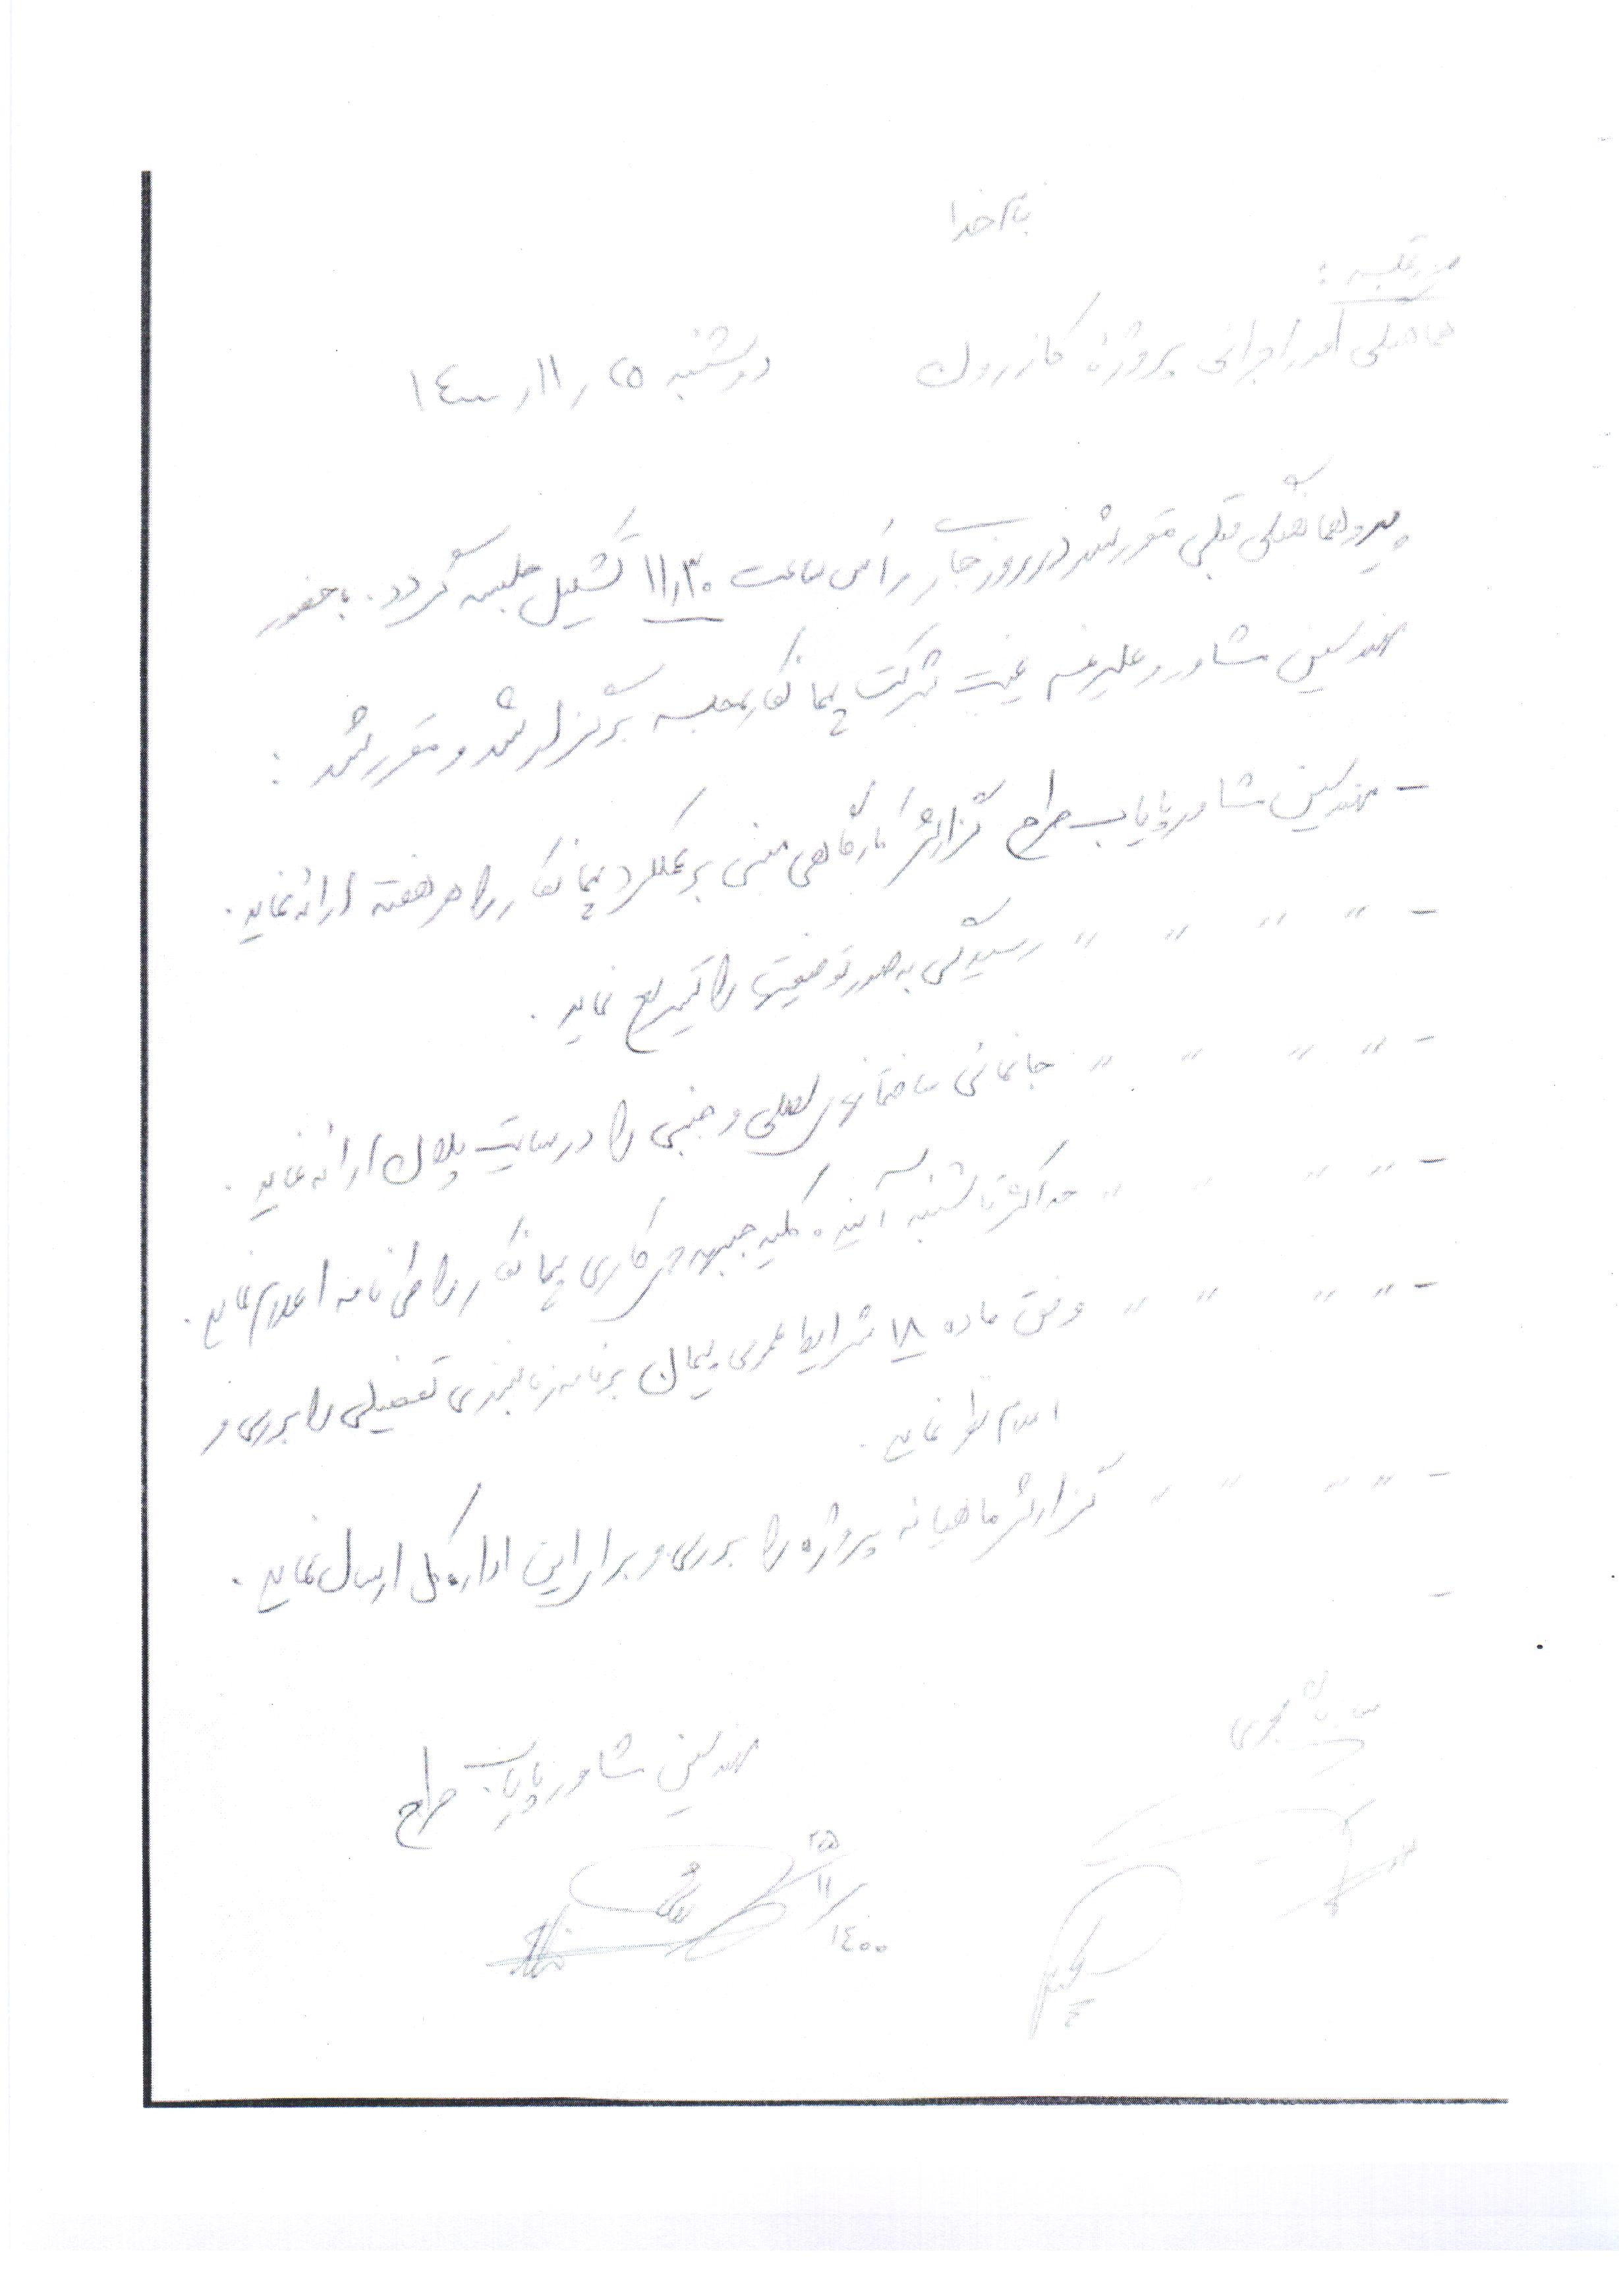 بنام خدا
صورتجلسه :
هماهنگی امور اجرائی پروژه کازرون دوشنبه ۲۵ / ۱۱ / ۱۴۰۰
پیرو هماهنگی قبلی مقرر شد در روز جاری رأس ساعت ۱۱٫۳۰ تشکیل جلسه گردد . با حضور
مهندسین مشاور و علیرغم غیبت شرکت پیمانکار جلسه برگزار شد و مقرر شد :
- مهندسین مشاور پایاب طرح گزارش کارگاهی مبنی بر عملکرد پیمانکار را هر هفته ارائه نماید .
- " " " " رسیدگی به صورت وضعیتها را تسریع نماید .
- " " " " جانمائی ساختمانهای اصلی و جنبی را در سایت پلان ارائه نماید .
- " " " " حداکثر تا شنبه آینده کلیه جبهه های کاری پیمانکار را طی نامه اعلام نماید .
- " " " " وفق ماده ۱۸ شرایط عمومی پیمان برنامه زمانبندی تفصیلی را بررسی و
اعلام نظر نماید .
- " " " " گزارش ماهیانه پروژه را بررسی و برای این اداره کل ارسال نماید .
-
مهندسین مشاور پایاب طرح
۲۵
۱۱
۱۴۰۰